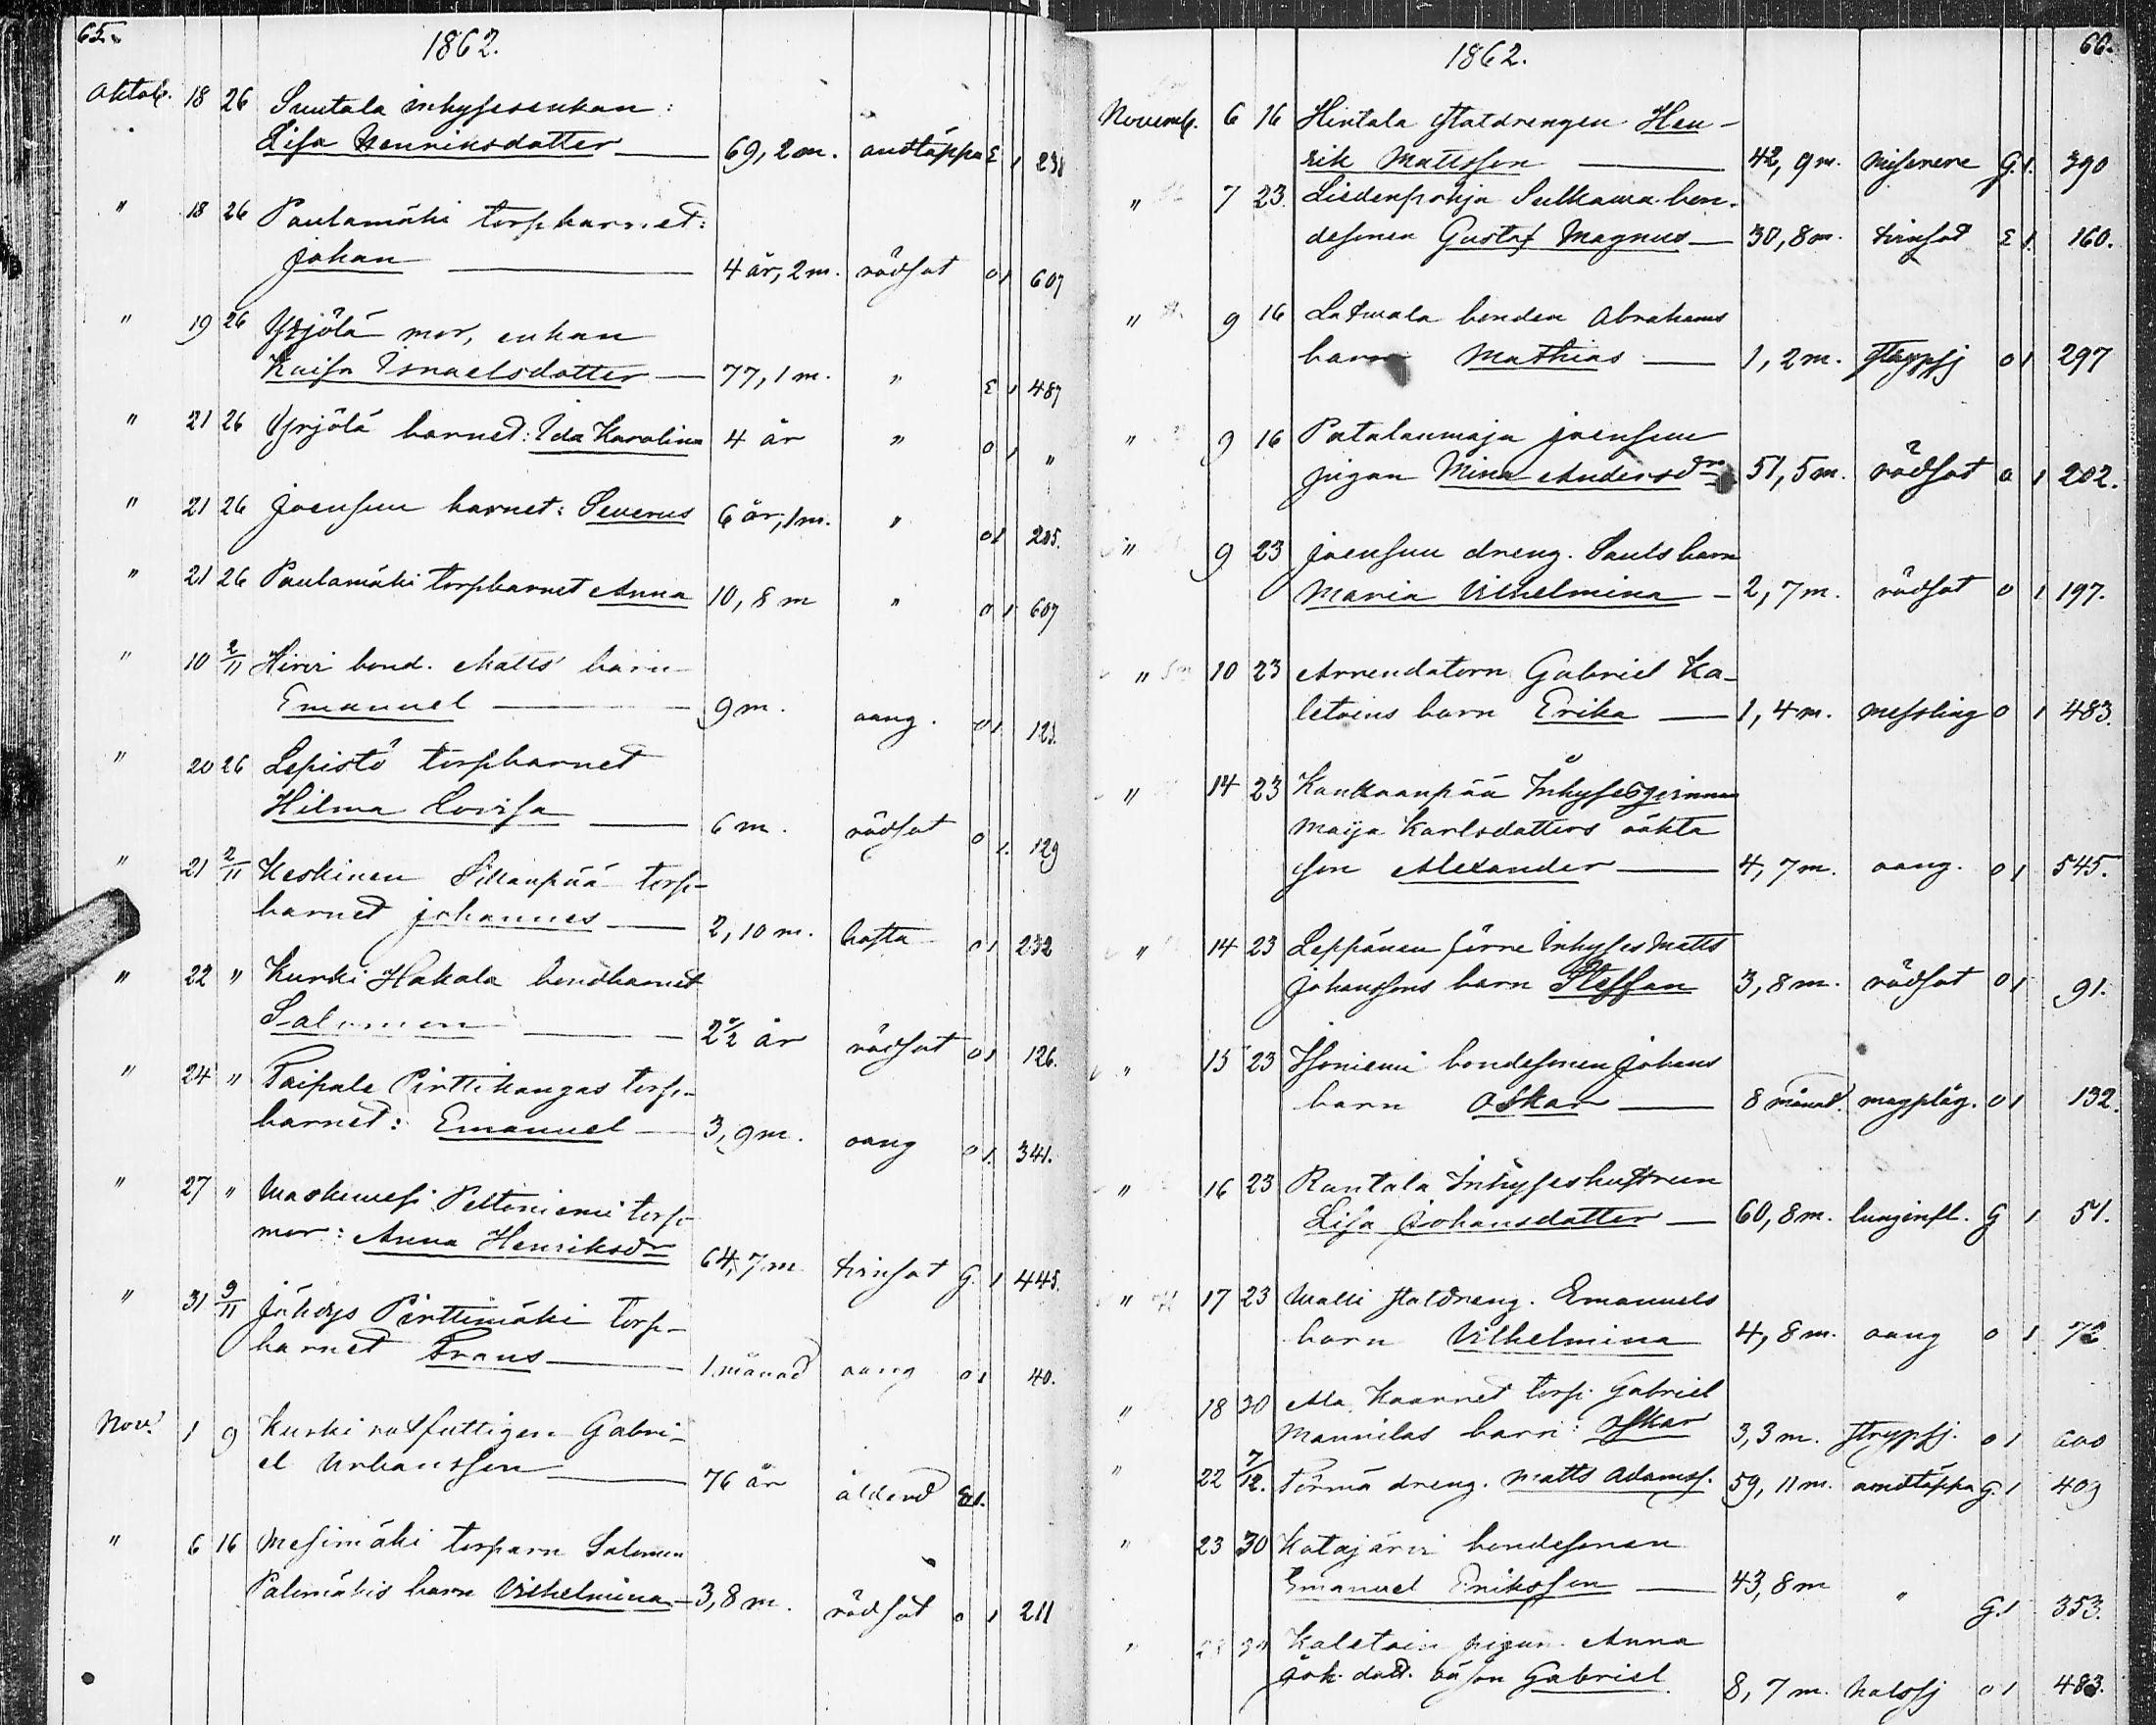 65.
1862.
Oktob. 18 26 Suutala inhysesenkan:
Lisa Henriksdotter — 69, 2 m. andtäppa E 1 238
" 18 26 Paulamäki torpbarnet:
Johan — 4 år, 2 m. rödsot o 1 607
" 19 26 Yrjölä mor, enkan
Kaisa Israelsdotter — 77, 1 m. " E 1 487
" 21 26 Yrjölä barnet: Ida Karolina 4 år " o 1 "
" 21 26 Joensuu barnet: Severus 6 år, 1 m. " o 1 205.
" 21 26 Paulamäki torpbarnet Anna 10, 8 m " o 1 607
" 10 2/11 Hirvi bond. Matts barn
Emanuel — 9 m. aang. o 1 123.
" 20 26 Lepistö torpbarnet
Hilma Lovisa — 6 m. rödsot o 1. 129
" 21 2/11 Keskinen Sillanpää torp-
barnet Johannes — 2, 10 m. hosta o 1 232
" 22 " Kurki Hakala bondbarnet
Salomon — 2 1/2 år rödsot o 1 126.
" 24 " Taipale Pirttikangas torp-
barnet: Emanuel — 3, 9 m. aang o 1. 341.
" 27 " Maskuvesi Peltoniemi torp-
mor: Anna Henriksdr 64, 7 m tvinsot G. 1 445.
" 31 9/11 Jähdys Pirttimäki torp-
barnet Frans — 1 månad aang o 1 40.
Nov. 1 9 Kurki rotfattigen Gabri-
el Urbansson — 76 år ålderd E 1.
" 6 16 Mesimäki torparn Salomon
Palomäkis barn Vilhelmina — 3, 8 m. rödsot o 1 211
66.
1862.
Novemb. 6 16 Hintala statdrengen Hen-
rik Mattsson — 42, 9 m. miserere G. 1. 390
" 7 23. Liedenpohja Sulkawa bon-
desonen Gustaf Magnus — 30, 8 m. tvinsot E 1. 160.
" 9 16 Latvala bonden Abrahams
barn Mathias — 1, 2 m. strypsj o 1 297
" 9 16 Patalanmaja Joensuu
pigan Mina Andersdr 51, 5 m. rödsot o 1 202.
" 9 23 Joensuu dreng. Sauls barn
Maria Vilhelmina — 2, 7 m. rödsot o 1 197.
" 10 23 Arrendatorn Gabriel Ka-
letoins barn Erika — 1, 4 m. messling o 1 483.
" 14 23 Kankaanpää Inhysesqvinnan
Maija Karlsdotters oäkta
son Alexander — 4, 7 m. aang. o 1 545.
" 14 23 Leppänen förre Inhyses Matts
Johanssons barn Steffan 3, 8 m. rödsot o 1 91.
" 15 23 Isoniemi bondesonen Johans
barn Oskar — 8 månad. magplåg. o 1 132.
" 16 23 Rantala Inhyseshustrun
Lisa Johansdotter — 60, 8 m. lunginfl. G 1 51.
" 17 23 Malli statdreng. Emanuels
barn Vilhelmina 4, 8 m. aang o 1 72
" 18 30 Ala Kaarnet torp. Gabriel
Mannilas barn: Oskar 3, 3 m. strypsj. o 1 600
" 22 7/12. Törmä dreng. Matts Adamss. 59, 11 m. andtäppa G. 1 409
" 23 30 Katajärvi bondesonen
Emanuel Eriksson — 43, 8 m " G. 1 353.
" 23 30 Kaletoin pigan Anna
Joh. dott. oä son Gabriel 8, 7 m. halssj o 1 483.